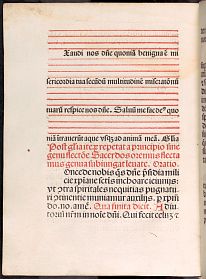 Exaudi nos dñe quoniã benigna ẽ mi
sericordia tua secũdũ multitudinẽ miseratõnũ
tuarũ respice nos dñe. Saluũ me fac deꝰ quo
niã ĩtrauerũt aque vsqꝫ ad animã meã. Glia
Post gliã iterꝫ repetat a principio sine
genuflectõe Sacerdos oremus flecta
mus genua subiungat leuate. Oratio.
Oncede nobis q̃s dñe p̃sidia mili
cie xp̃iane sctis inchoare ieiunijs:
vt ꝯtra spirtales nequitias pugnatu
ri ꝯtinentie muniamur auxilijs. p xp̃m
do. no. amẽ. Qua finita dicit. Adiu
toriũ nrm ĩ noĩe dñi. Qui fecit celũ ⁊ t